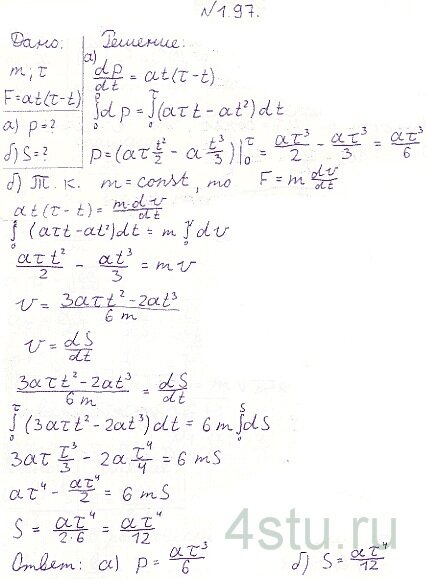 №1.97.
Дано: Решение:
m, τ
F=at(τ-t)
а) p=?
б) S=?
а) dp/dt = at(τ-t)
∫₀ dp = ∫₀^τ (aτt - at²)dt
p = (aτ t²/2 - a t³/3)|₀^τ = aτ³/2 - aτ³/3 = aτ³/6
б) Т. к. m=const, то F=m dv/dt
at(τ-t) = m·dv/dt
∫₀ (aτt-at²)dt = m∫₀^v dv
aτt²/2 - at³/3 = mv
v = (3aτt²-2at³)/6m
v = dS/dt
(3aτt²-2at³)/6m = dS/dt
∫₀^τ (3aτt²-2at³)dt = 6m∫₀^S dS
3aτ τ³/3 - 2a τ⁴/4 = 6mS
aτ⁴ - aτ⁴/2 = 6mS
S = aτ⁴/2·6 = aτ⁴/12
Ответ: а) p = aτ³/6 б) S = aτ⁴/12
4stu.ru